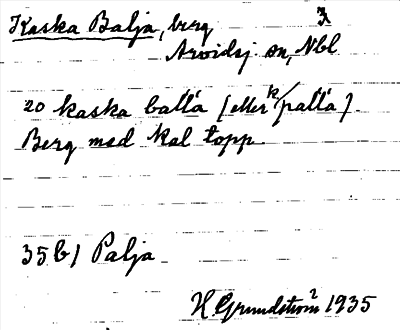 Kaska Balja, berg
Arvidsj. sn, Nbl
20 kaska ballá [eller k/pallá].
Berg med kal topp.
35b) Palja
H Grundström 1935